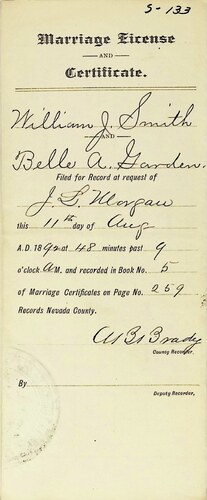 5-133
Marriage License
AND
Certificate.
William J. Smith
AND
Belle A. Garden.
Filed for Record at request of
J. L. Morgan
this 11th day of Aug
A.D. 1892 at 48 minutes past 9
o'clock A.M. and recorded in Book No. 5
of Marriage Certificates on Page No. 259
Records Nevada County.
Brady
County Recorder.
By
Deputy Recorder.